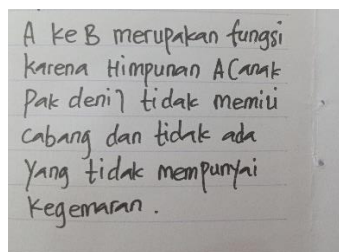 A ke B merupakan fungsi
karena Himpunan A (anak
Pak deni) tidak memili
cabang dan tidak ada
yang tidak mempunyai
kegemaran.